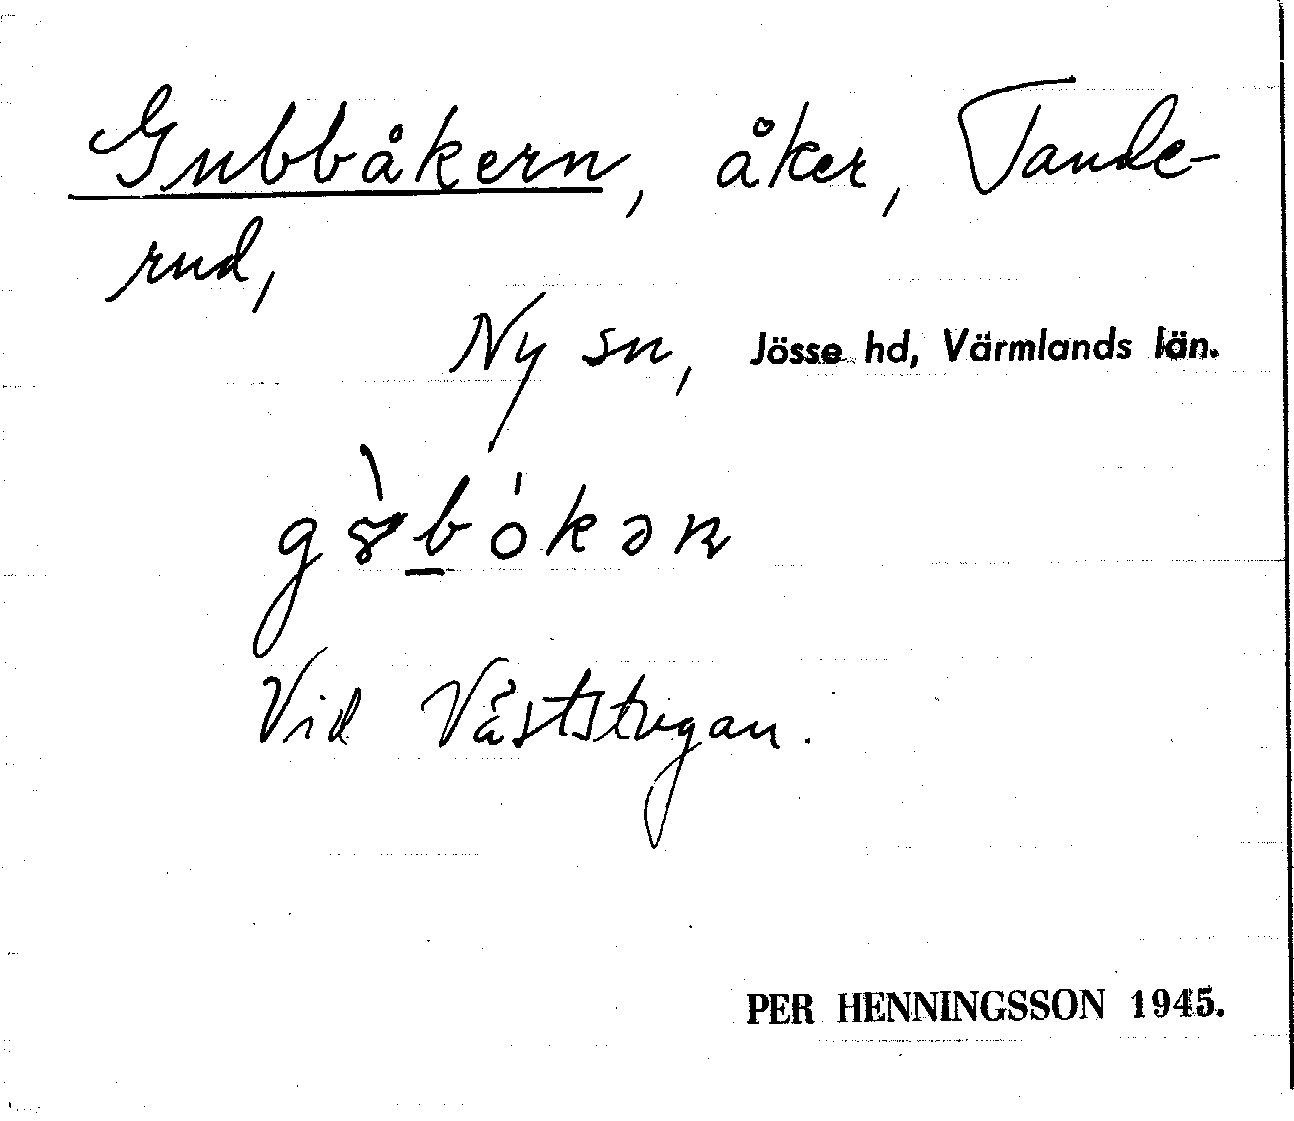 Gubbåkern, åker, Tande-
rud,
Ny sn, Jösse hd, Värmlands län.
g ꝏ̀ b ó k ə ɳ
Vid Väststugan.
PER HENNINGSSON 1945.